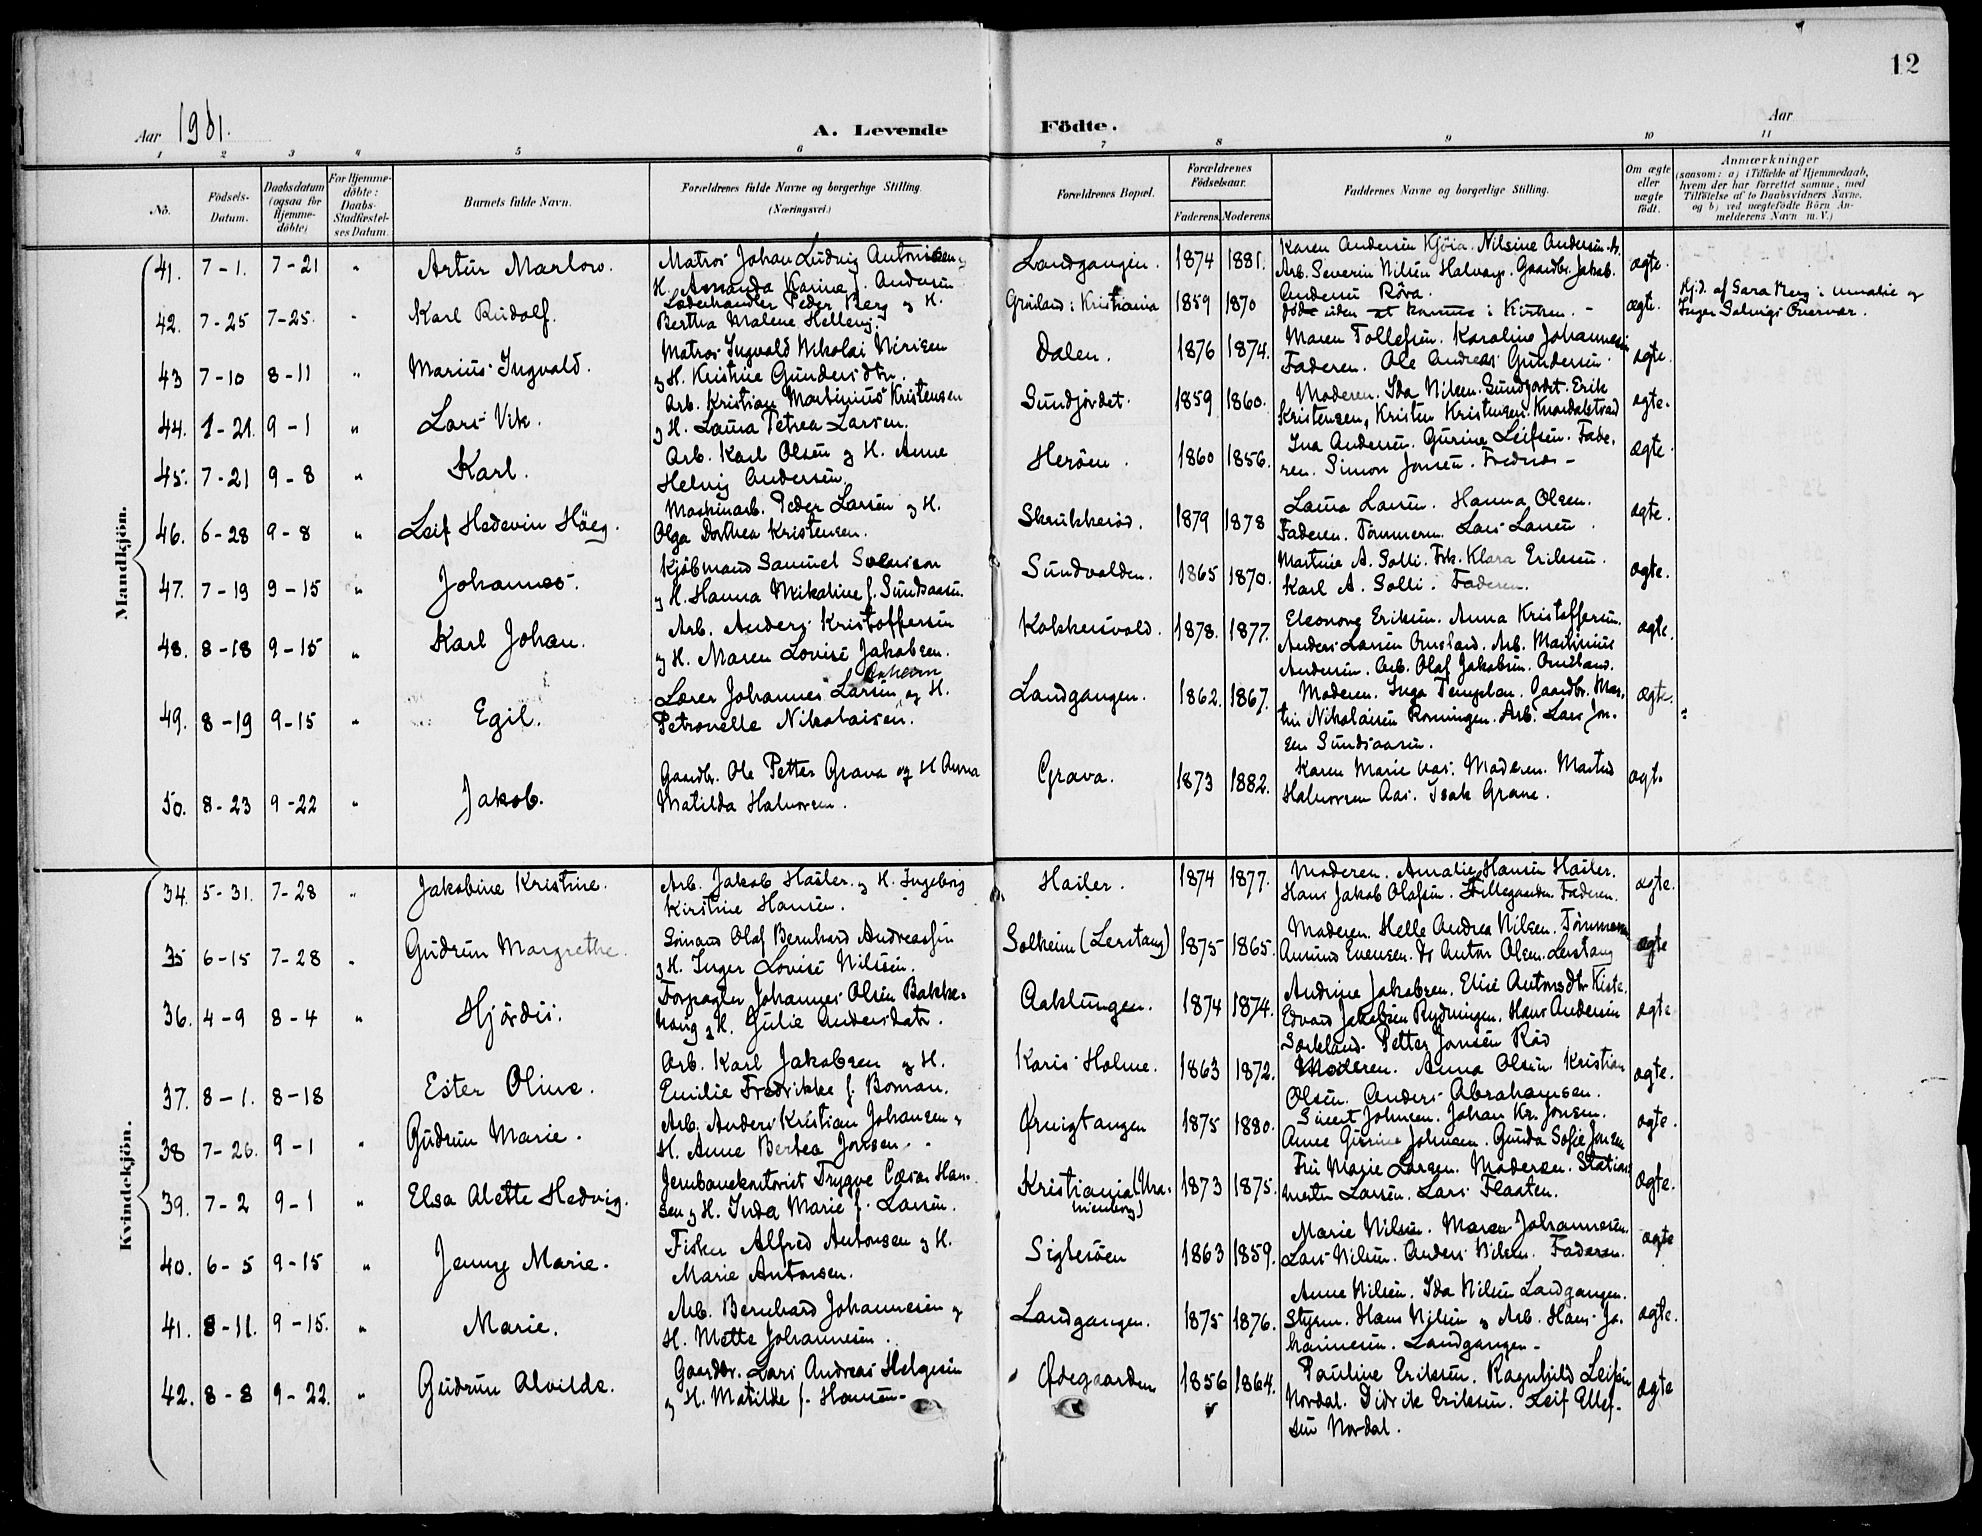 12
Aar 1901.
A. Levende Födte.
Aar
1 2 3 4 5 6 7 8 9 10 11
No.
Födsels-Datum.
Daabsdatum (ogsaa for Hjemme-döbte)
For Hjemme-döbte: Daabs-Stadfæstel-ses Datum.
Barnets fulde Navn.
Forældrenes fulde Navne og borgerlige Stilling. (Næringsvei.)
Forældrenes Bopæl.
Forældrenes Födselsaar.
Faderens Moderens
Faddernes Navne og borgerlige Stilling.
Om ægte eller uægte födt.
Anmærkninger
(saasom: a) i Tilfælde af Hjemmedaab,
hvem der har forrettet samme, med
Tilföielse af to Daabsvidners Navne,
og b) ved uægtefödte Börn An-
melderens Navn m. V.)
Mandkjön.
41. 7-1. 7-21 " Artur Marlow. Matros Johan Ludvig Antonisen og H. Amanda Karine f. Andersen Landgangen. 1874 1881. Karen Andersen Kjöia. Nilsine Andersen. Arb. Severin Nilsen Halvarp. Gaardbr. Jakob Andersen Röra. ægte.
42. 7-25 7-25. " Karl Rudolf. Læderhandler Peder Berg og H. Bertha Malene Helleng. Grünland i Kristiania 1859 1870 döde uden at komme i Kirken. - ægte. Hjd. af Sara Berg i
43 7-10 8-11 " Marius Ingvald. Matros Ingvald Nikolai Nirisen og H. Kristine Gundersdtr. Dalen. 1876 1874. Maren Tollefsen. Karoline Johannesen Faderen. Ole Andreas Gundersen ægte.
44. 1-21. 9-1 " Lars Vik. Arb. Kristian Martinius Kristensen og H. Laura Petrea Larsen. Sundjordet. 1859 1860. Moderen. Ida Nilsen Sundjordet. Erik Kristensen, Kristen Kristensen Knardalstrand ægte.
45. 7-21 9-8 " Karl. Arb. Karl Olsen og H. Anne Helvig Andersen Heröen. 1860 1856. Ina Andersen. Gurine Leifsen. Faderen. Simon Jonsen. Frednes - ægte.
46. 6-28 9-8 " Leif Hedevin Höeg. Maskinarb. Peder Larsen og H. Olga Dorthea Kristensen. Skrukkeröd. 1879 1878 Laura Larsen. Hanna Olsen. Faderen. Tömmerm. Lars Larsen ægte.
47. 7-19 9-15 " Johannes. Kjöbmand Samuel Svenison og H. Hanna Mikaline f. Sundsaasen. Sundvolden. 1865 1870. Martine A. Solli. Frk. Klara Eriksen. Karl A. Solli. Faderen. ægte.
48. 8-18 9-15 " Karl Johan. Arb. Anders Kristoffersen og H. Maren Lovise Jakobsen. Kokkersvold. 1878. 1877. Eleonore Eriksen. Anna Kristoffersen. Anders Larsen Ørsland. Arb. Martinius Andersen. Arb. Olaf Jakobsen. ægte.
49. 8-19 9-15 " Egil. Lærer Johannes Larsen og H. Petronelle Nikolaisen. Landgangen. 1862. 1867. Moderen. Inga Templen. Gaardbr. Martin Nikolaisen Rønningen. Arb. Lars Jonsen Sundsaasen. ægte.
50. 8-23 9-22 " Jakob. Gaardbr. Ole Petter Grava og H Anna Matilda Halvorsen. Grava. 1873 1882. Karen Marie Aas. Moderen. Halvorsen Aas. Isak Grane. ægte.
Kvindekjön.
34. 5-31. 7-28 " Jakobine Kristine. Arb. Jakob Hasler og H. Ingeborg Kirstine Hansen. Hasler. 1874 1877. Moderen. Amalie Hansen Hasler. Hans Jakob Olafsen. Faderen. ægte.
35 6-15 7-28 " Gudrun Margrethe. Sömand Olaf Bernhard Andreassen og H. Inger Lovise Nilsen. Solheim (Lerstang) 1875 1865. Moderen. Helle Andrea Nilsen. Tömmerm Amund Evensen. Do Anton Olsen. Lerstang ægte
36. 4-9 8-4 " Hjördis. Forpagter Johannes Olsen Bakkehaug og H. Gulie Andersdatr. Aaklungen. 1874 1874. Andrine Jakobsen. Elise Antonsdtr Kiste. Edvard Jakobsen Rydningen. Hans Andersen Sörkland. Petter Jonsen Röd ægte
37. 8-1. 8-18 Ester Oline. Arb. Karl Jakobsen og H. Emilie Fredrikke f. Boman. Karis Holme. 1863 1872. Moderen. Anna Olsen. Kristian Olsen. Anders Abrahamsen. ægte.
38 7-26. 9-1 " Gudrun Marie. Arb. Anders Kristian Johansen og H. Anne Bertea Jonsen. Ørvigtangen 1875 1880. Sivert Johnsen. Johan Kr. Jonsen. Anne Gurine Johnsen. Gunda Sofie Jonsen ægte.
39. 7-2 9-1 " Elsa Alette Hedvig. Jernbanekontorist Trygve Cæsar Hansen og H. Inda Marie f. Larsen. Kristiania (Uranienborg) 1873 1875. Fru Marie Larsen. Moderen. Stationsmester Larsen. Lars Flaaten. ægte.
40. 6-5 9-15 " Jenny Marie. Fisker Alfred Antonsen og H. Marie Antonsen. Sigtesöen 1863 1859. Marie Nilsen. Maren Johannesen. Lars Nilsen. Anders Nilsen. Faderen. ægte
41. 8-11. 9-15. " Marie. Arb. Bernhard Johannesen og H. Mette Johannesen. Landgangen. 1875 1876. Anne Nilsen. Ida Nilsen Landgangen. Styrm. Hans Nilsen og Arb. Hans Johannesen. Landgangen - ægte.
42. 8-8 9-22. " Gudrun Alvilde. Gaardbr. Lars Andreas Helgesen og H. Matilde f. Hansen - Ødegaarden 1856 1864. Pauline Eriksen. Ragnhild Leifsen Nordal. Didrik Eriksen. Leif Ellefsen Nordal. ægte